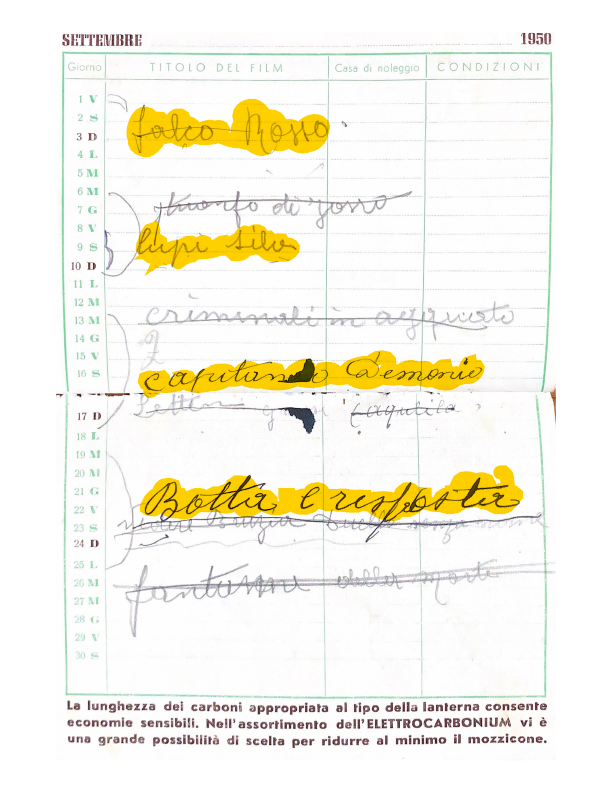 SETTEMBRE 1950
Giorno TITOLO DEL FILM Casa di noleggio CONDIZIONI
1 V
2 S
falco Rosso
3 D
4 L
5 M
6 M
trionfo di zorro
7 G
8 V
lupi
9 S
10 D
11 L
12 M
criminali in agguato
13 M
14 G
15 V
capitano Demonio
16 S
17 D
18 L
19 M
20 M
Botta e risposta
21 G
22 V
23 S
24 D
25 L
fantasmi della morte
26 M
27 M
28 G
29 V
30 S
La lunghezza dei carboni appropriata al tipo della lanterna consente
economie sensibili. Nell'assortimento dell'ELETTROCARBONIUM vi è
una grande possibilità di scelta per ridurre al minimo il mozzicone.